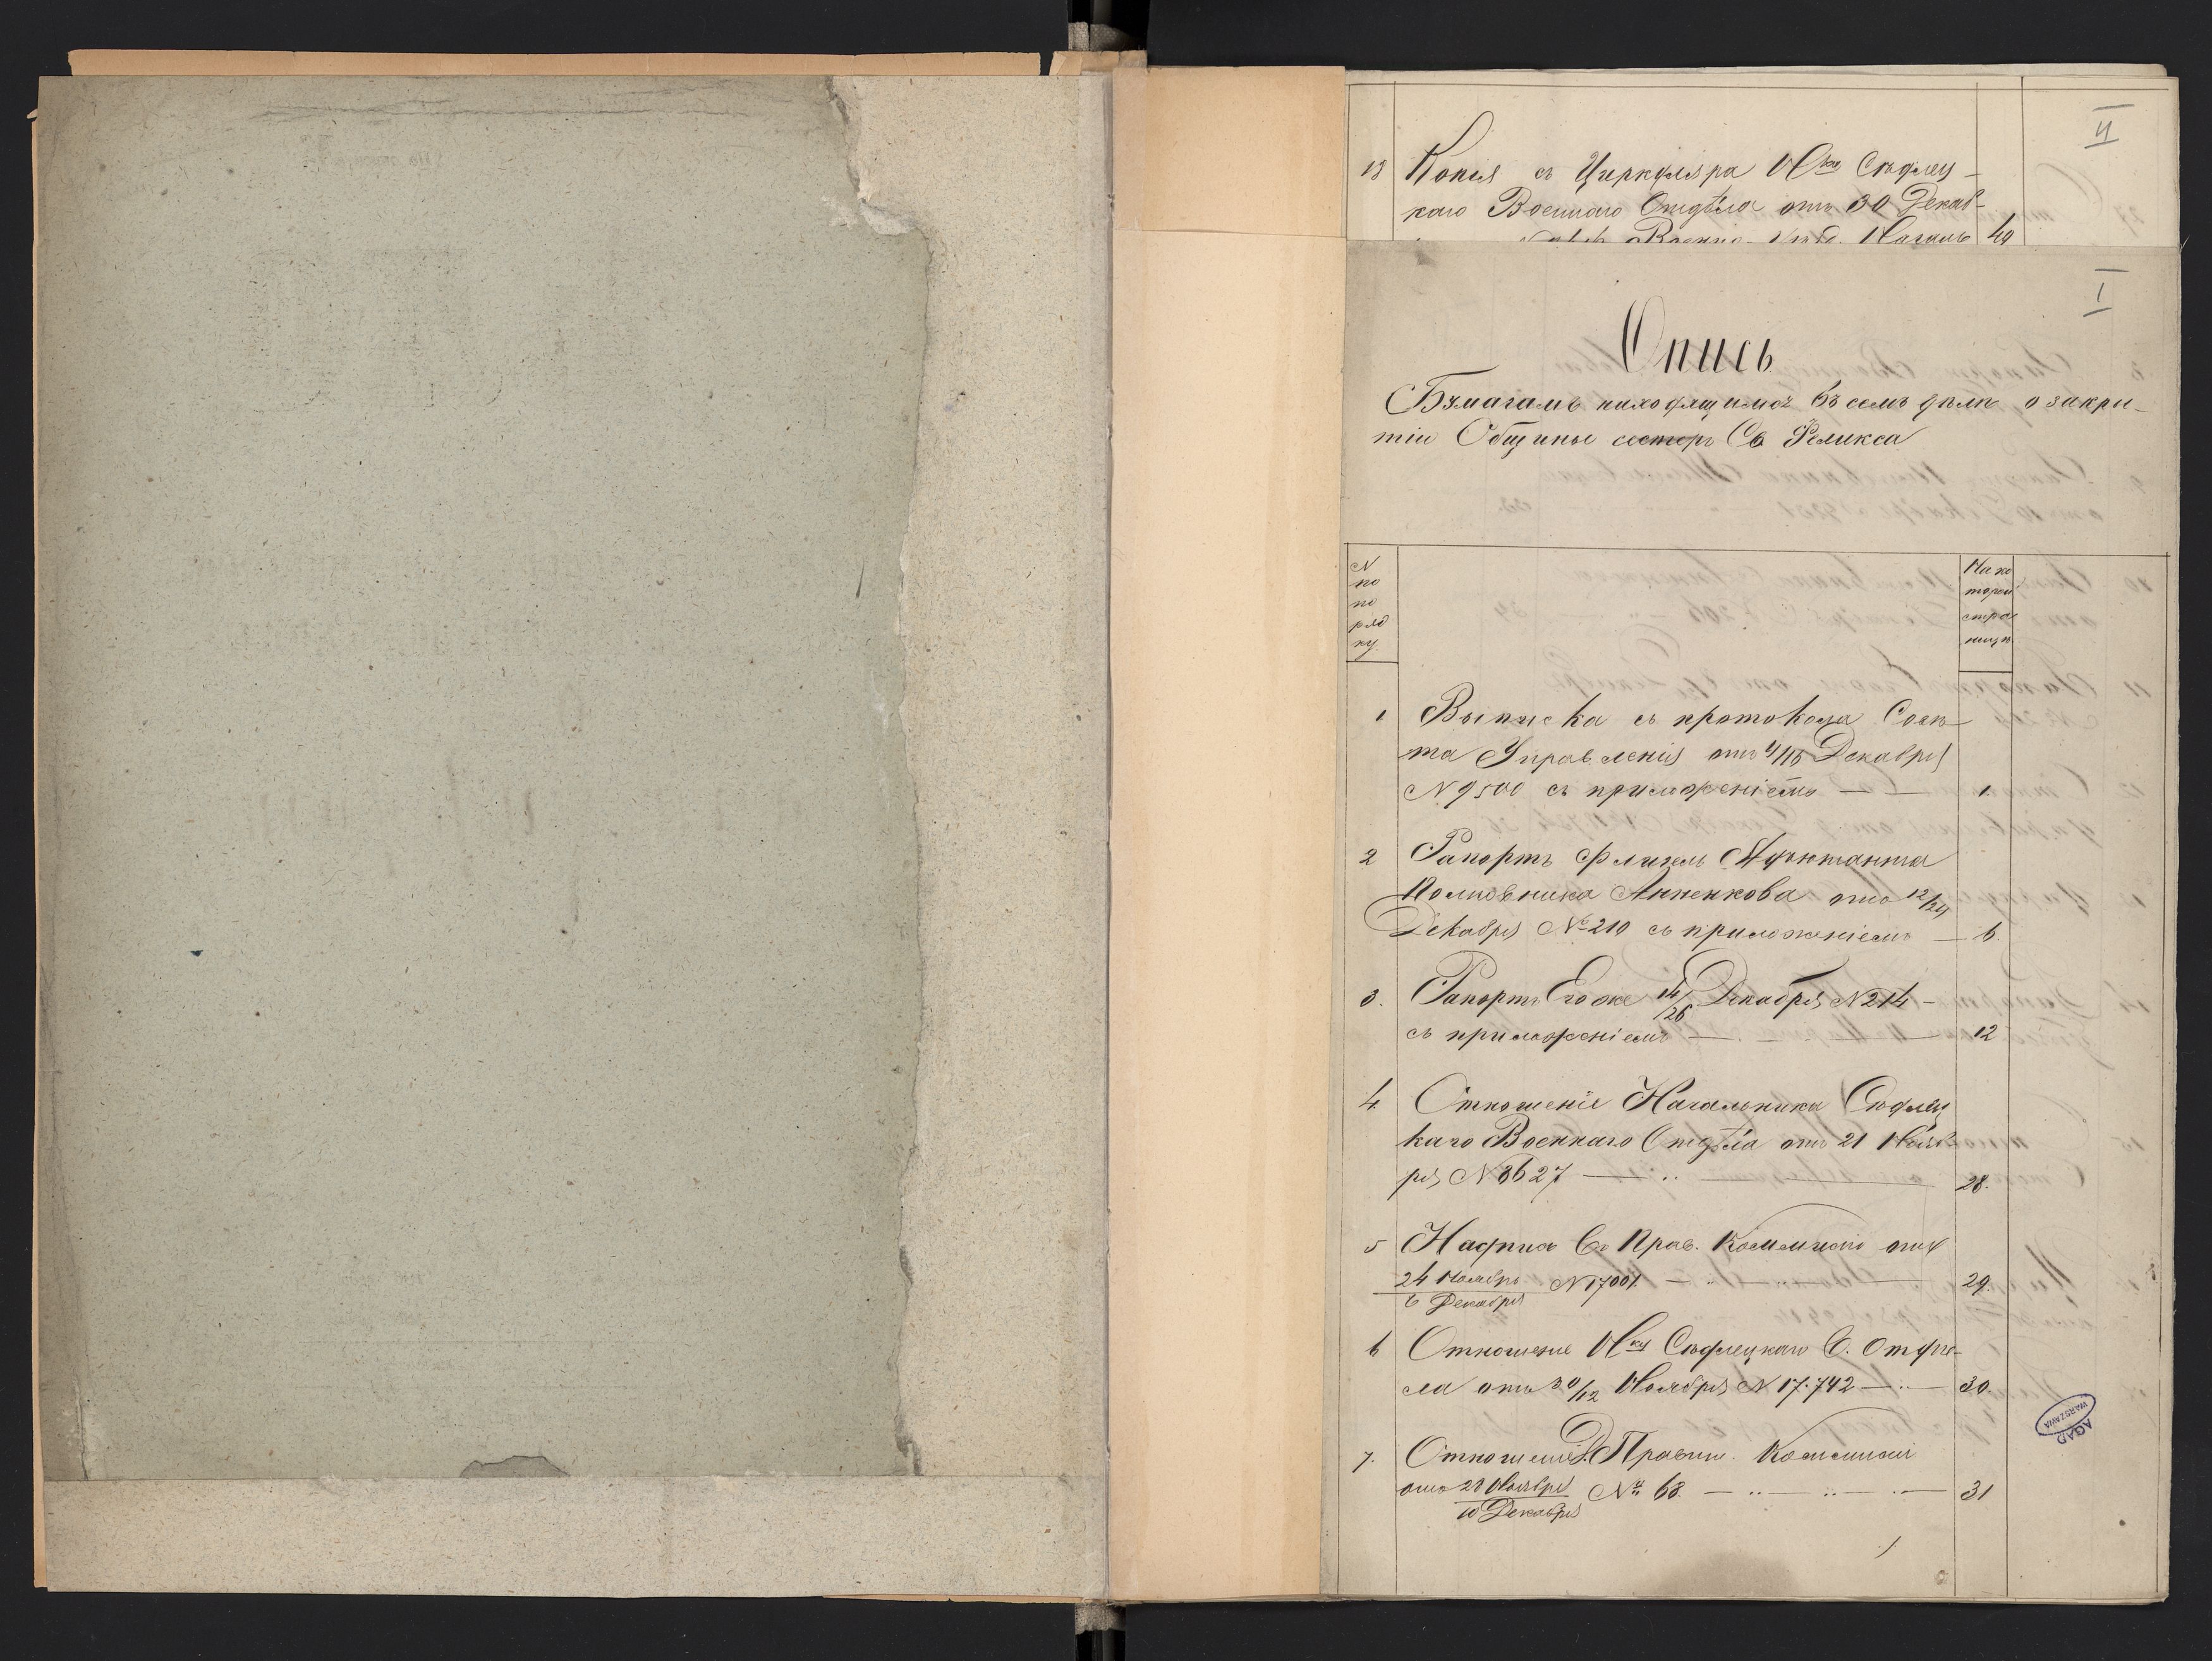 II
13 Копія съ Циркуляра Нка Сѣдлец-
каго Военнаго Отдѣла отъ 30 Декаб-
Военно- Началь 49
I
Опись
Бумагамъ находящимся въ семъ дѣлѣ о закры-
тіи Общины сестеръ Св Феликса
N по по ряд ку.
На ко торой стра ницѣ
1 Выписка съ протокола Совѣ-
та Управленія отъ 4/16 Декабря
N 9500 съ приложеніемъ — — 1.
2 Рапортъ Флигель Адъютанта
Полковника Анненкова отъ 12/24
Декабря № 210 съ приложеніемъ — 6.
3. Рапортъ Егоже 14/26 Декабря N 214 -
съ приложеніемъ — — 12
4. Отношеніе Начальника Сѣдлец
каго Военнаго Отдѣла отъ 21 Нояб
ря N 3627 — 28.
5 Надпись Прав. Коммисіи отъ
24 Ноября N 17001. — 29.
6 Декабря
6 Отношеніе Нка Сѣдлецкаго В. Отдѣ-
ла отъ 30/12 Ноября N 17.742 — 30.
7. Отношеніе Правит. Коммисіи
отъ 28 Ноября № 68. — 31
10 Декабря
AGAD
WARSZAWA